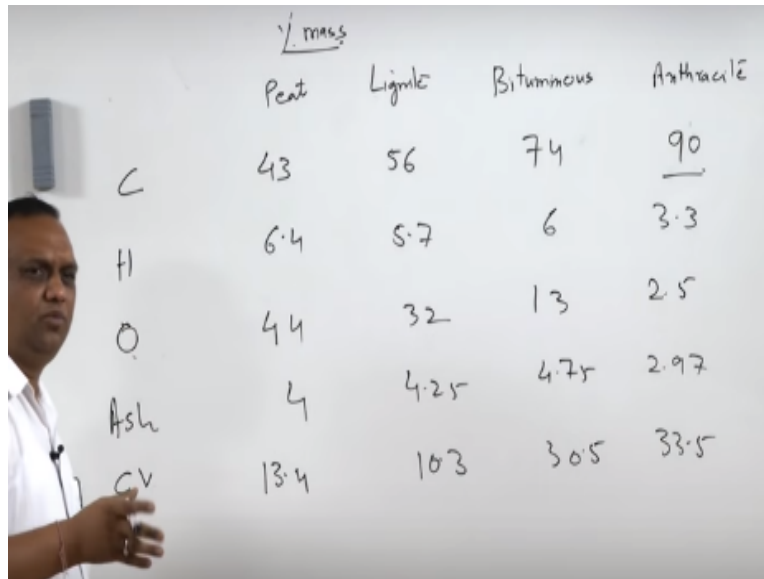 % mass
Peat Lignite Bituminous Anthracite
C 43 56 74 90
H 6.4 5.7 6 3.3
O 44 32 13 2.5
Ash 4 4.25 4.75 2.97
CV 13.4 10.3 30.5 33.5